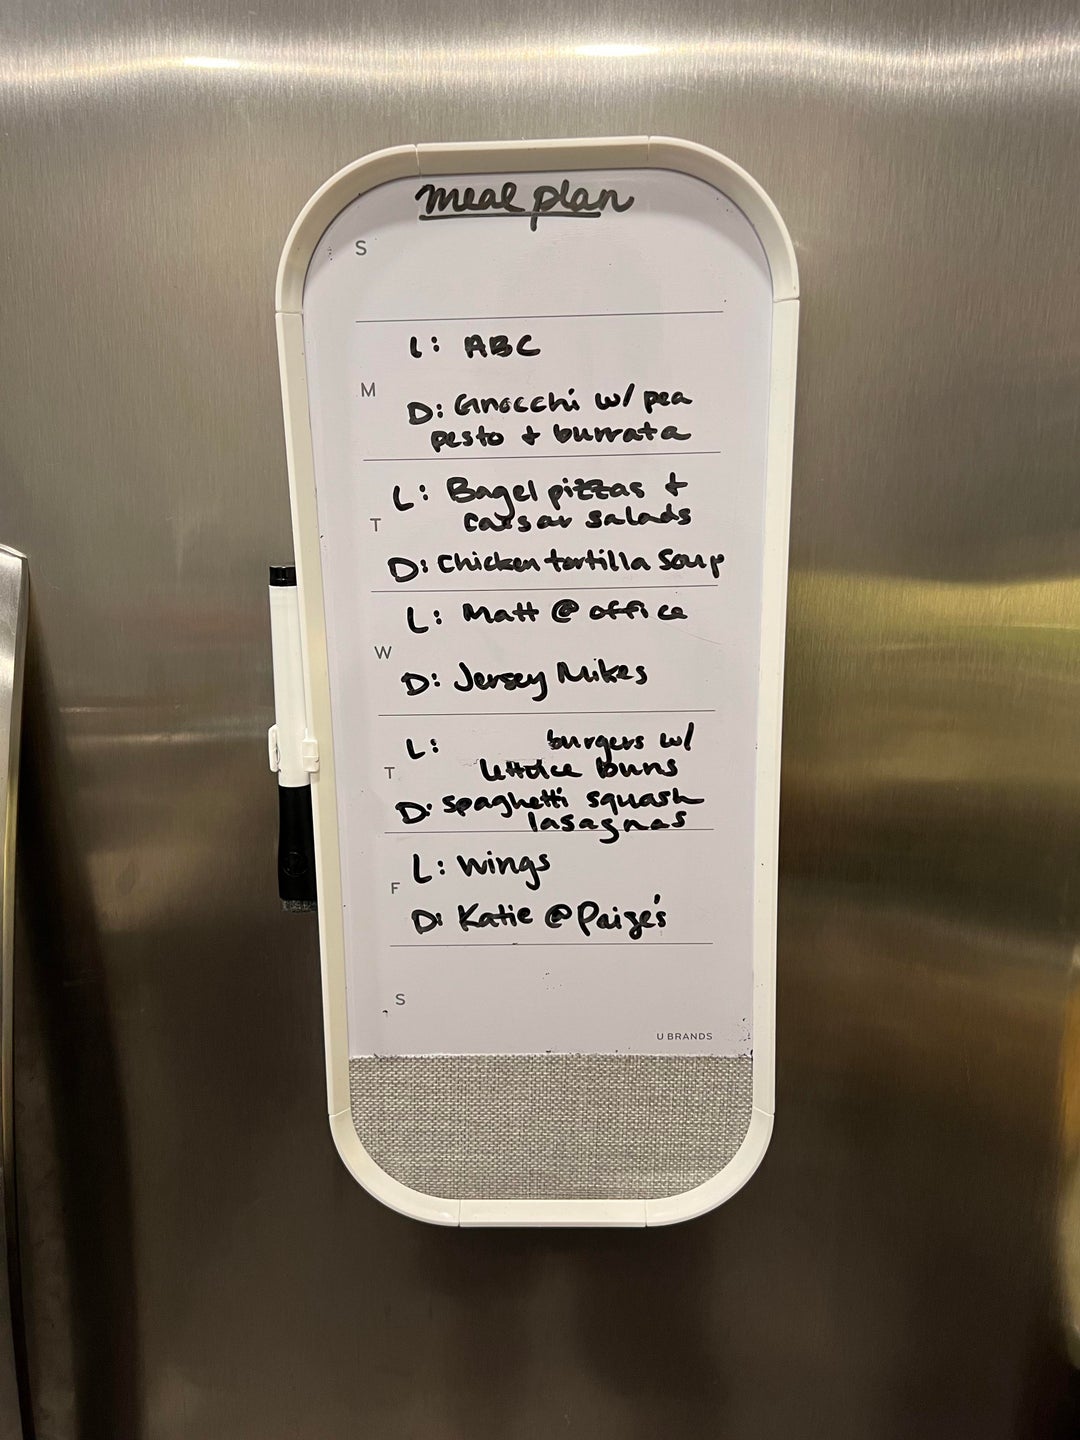 meal plan
S
L: ABC
M
D: Gnocchi w/ pea
pesto + burrata
L: Bagel pizzas +
caesar salads
T
D: Chicken tortilla Soup
L: Matt @ office
W
D: Jersey Mikes
L: burgers w/
lettuce buns
T
D: spaghetti squash
lasagnas
L: Wings
F
D: Katie @ Paige's
S
U BRANDS